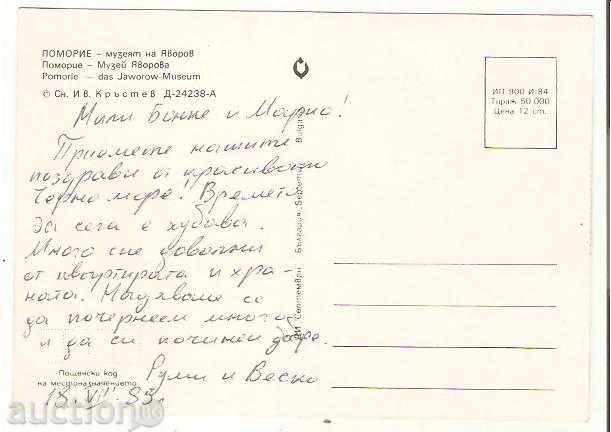 ПОМОРИЕ – музеят на Яворов
Поморие – Музей Яворова
Pomorie – das Jaworow-Museum
© Сн. Ив. Кръстев Д-24238-А
ИП 900 И-84
Тираж 50 000
Цена 12 ст.
Мили Бонке и Марио!
Приемете нашите
поздрави от красивото
Черно море! Времето
за сега е хубаво.
Много сме доволни
от квартирата и хра-
ната. Надяваме се
да почернеем много
и да си починем добре.
Руми и Веско
18. VIII. 85 г.
Пощенски код
на местоназначението
Септември България Septemvri Bulgaria
auction